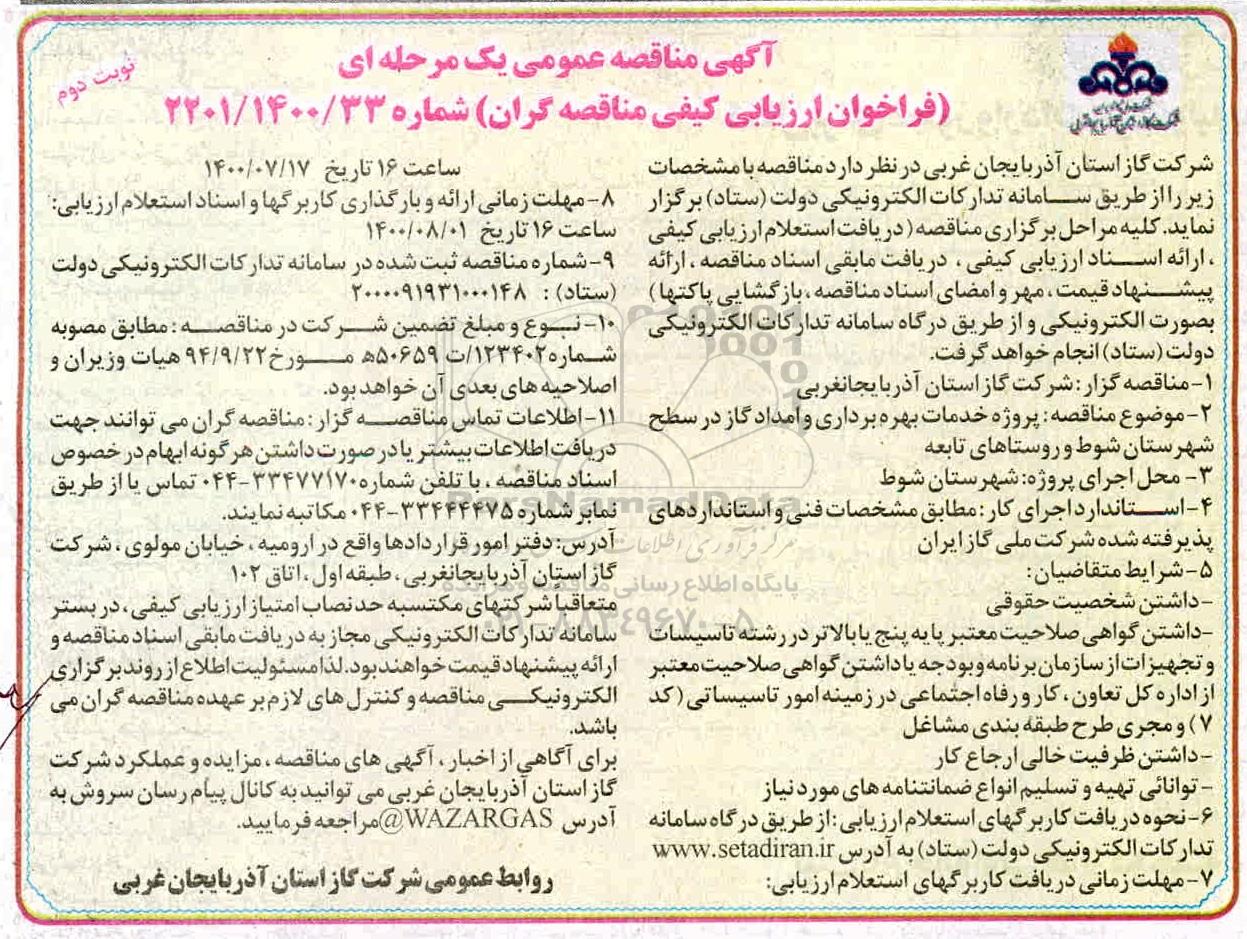 نوبت دوم
آگهی مناقصه عمومی یک مرحله ای
(فراخوان ارزیابی کیفی مناقصه گران) شماره ۲۲۰۱/۱۴۰۰/۳۳
شرکت گاز استان آذربایجان غربی در نظر دارد مناقصه با مشخصات
زیر را از طریق سامانه تدارکات الکترونیکی دولت (ستاد) برگزار
نماید. کلیه مراحل برگزاری مناقصه (دریافت استعلام ارزیابی کیفی
، ارائه اسناد ارزیابی کیفی ، دریافت مابقی اسناد مناقصه ، ارائه
پیشنهاد قیمت ، مهر و امضای اسناد مناقصه ، بازگشایی پاکتها )
بصورت الکترونیکی و از طریق درگاه سامانه تدارکات الکترونیکی
دولت (ستاد) انجام خواهد گرفت.
۱-مناقصه گزار : شرکت گاز استان آذربایجانغربی
۲-موضوع مناقصه : پروژه خدمات بهره برداری و امداد گاز در سطح
شهرستان شوط و روستاهای تابعه
۳- محل اجرای پروژه: شهرستان شوط
۴-استاندارد اجرای کار : مطابق مشخصات فنی و استانداردهای
پذیرفته شده شرکت ملی گاز ایران
۵-شرایط متقاضیان :
-داشتن شخصیت حقوقی
-داشتن گواهی صلاحیت معتبر پایه پنج یا بالاتر در رشته تاسیسات
و تجهیزات از سازمان برنامه و بودجه یا داشتن گواهی صلاحیت معتبر
از اداره کل تعاون ، کار و رفاه اجتماعی در زمینه امور تاسیساتی (کد
۷) و مجری طرح طبقه بندی مشاغل
-داشتن ظرفیت خالی ارجاع کار
- توانائی تهیه و تسلیم انواع ضمانتنامه های مورد نیاز
۶-نحوه دریافت کاربرگهای استعلام ارزیابی : از طریق درگاه سامانه
تدارکات الکترونیکی دولت (ستاد) به آدرس www.setadiran.ir
۷-مهلت زمانی دریافت کاربرگهای استعلام ارزیابی:
ساعت ۱۶ تاریخ ۱۴۰۰/۰۷/۱۷
۸-مهلت زمانی ارائه و بارگذاری کاربرگها و اسناد استعلام ارزیابی:
ساعت ۱۶ تاریخ ۱۴۰۰/۰۸/۰۱
۹-شماره مناقصه ثبت شده در سامانه تدارکات الکترونیکی دولت
(ستاد) : ۲۰۰۰۰۹۱۹۳۱۰۰۰۱۴۸
۱۰- نوع و مبلغ تضمین شرکت در مناقصه : مطابق مصوبه
شماره ۱۲۳۴۰۲/ت ۵۰۶۵۹ه مورخ ۹۴/۹/۲۲ هیات وزیران و
اصلاحیه های بعدی آن خواهد بود.
۱۱-اطلاعات تماس مناقصه گزار : مناقصه گران می توانند جهت
دریافت اطلاعات بیشتر یا در صورت داشتن هرگونه ابهام در خصوص
اسناد مناقصه ، با تلفن شماره ۳۳۴۷۷۱۷۰-۰۴۴ تماس یا از طریق
نمابر شماره ۳۳۴۴۴۴۷۵-۰۴۴ مکاتبه نمایند.
آدرس: دفتر امور قراردادها واقع در ارومیه ، خیابان مولوی ، شرکت
گاز استان آذربایجانغربی ، طبقه اول ، اتاق ۱۰۲
متعاقبا شرکتهای مکتسبه حد نصاب امتیاز ارزیابی کیفی ، در بستر
سامانه تدارکات الکترونیکی مجاز به دریافت مابقی اسناد مناقصه و
ارائه پیشنهاد قیمت خواهند بود. لذا مسئولیت اطلاع از روند برگزاری
الکترونیکی مناقصه و کنترل های لازم بر عهده مناقصه گران می
باشد.
برای آگاهی از اخبار ، آگهی های مناقصه ، مزایده و عملکرد شرکت
گاز استان آذربایجان غربی می توانید به کانال پیام رسان سروش به
آدرس WAZARGAS@ مراجعه فرمایید.
روابط عمومی شرکت گاز استان آذربایجان غربی
ParsNamadData
مرکز فرآوری اطلاعات
پایگاه اطلاع رسانی مناقصه و مزایده
۰۲۱-۸۸۳۴۹۶۷۰-۵